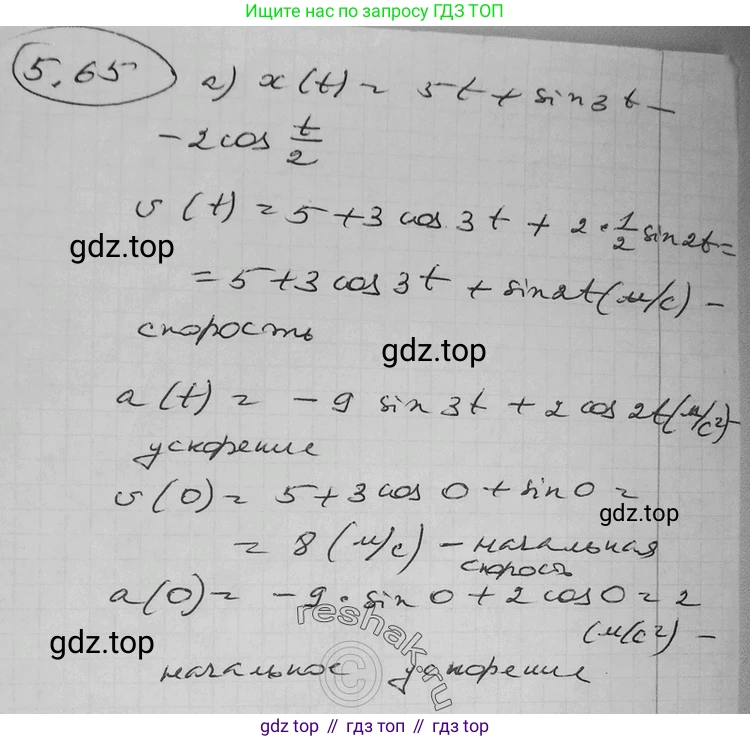 Ищите нас по запросу ГДЗ ТОП
5.65 а) x(t) = 5t + sin3t -
- 2cos t/2
v(t) = 5 + 3 cos 3t + 2 · 1/2 sin2t =
gdz.top
= 5 + 3 cos 3t + sin2t (м/с) -
скорость
gdz.top
a(t) = - 9 sin 3t + 2 cos 2t (м/с²) -
ускорение
v(0) = 5 + 3 cos 0 + sin 0 =
gdz.top
= 8 (м/с) - начальная
скорость
a(0) = - 9 · sin 0 + 2 cos 0 = 2
reshak.ru
©
gdz.top
(м/с²) -
начальное ускорение
gdz top // гдз топ // gdz.top // гдз.топ